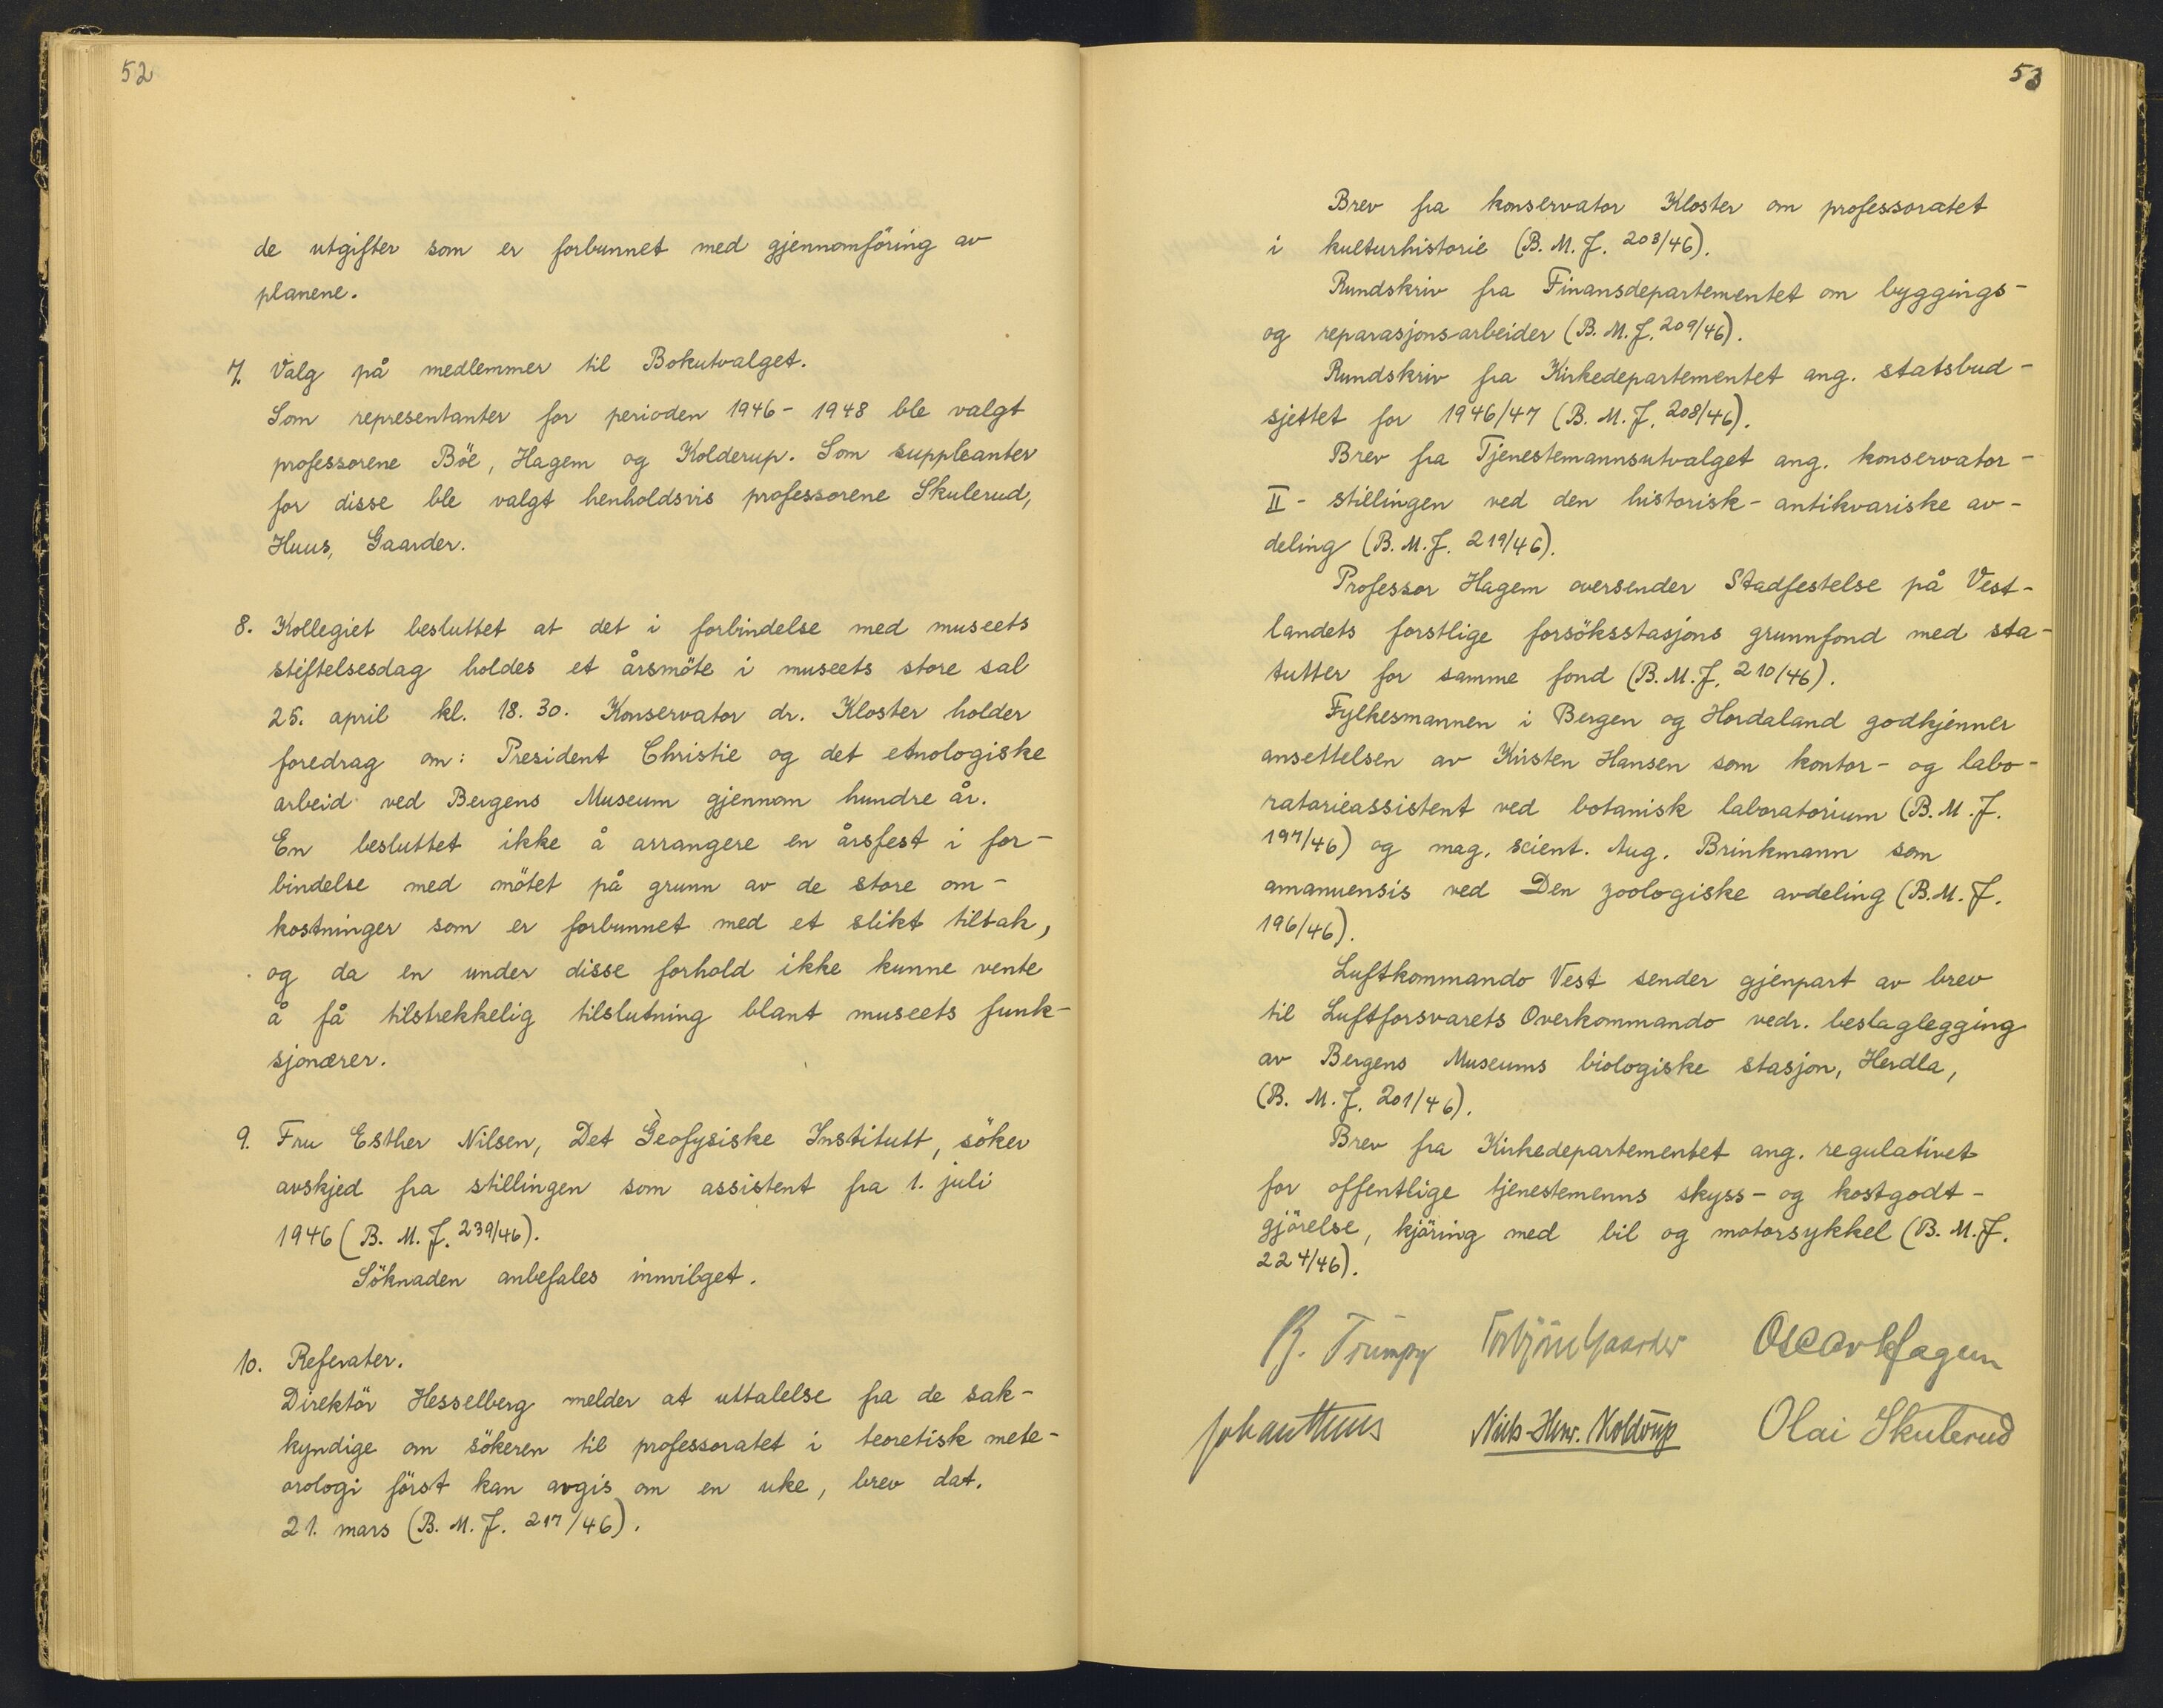 52
de utgifter som er forbunnet med gjennomföring av
planene.
7. Valg på medlemmer til Bokutvalget.
Som representanter for perioden 1946 - 1948 ble valgt
professorene Böe, Hagem og Kolderup. Som suppleanter
for disse ble valgt henholdsvis professorene Skulerud,
Huus, Gaarder.
8. Kollegiet besluttet at det i forbindelse med museets
stiftelsesdag holdes et årsmöte i museets store sal
25. april kl. 18.30. Konservator dr. Kloster holder
foredrag om: President Christie og det etnologiske
arbeid ved Bergens Museum gjennom hundre år.
En besluttet ikke å arrangere en årsfest i for-
bindelse med mötet på grunn av de store om-
kostninger som er forbunnet med et slikt tiltak,
og da en under disse forhold ikke kunne vente
å få tilstrekkelig tilslutning blant museets funk-
sjonærer.
9. Fru Esther Nilsen, Det Geofysiske Institutt, söker
avskjed fra stillingen som assistent fra 1. juli
1946 (B. M. J. 239/46).
Söknaden anbefales innvilget.
10. Referater.
Direktör Hesselberg melder at uttalelse fra de sak-
kyndige om sökeren til professoratet i teoretisk mete-
orologi först kan avgis om en uke, brev dat.
21. mars (B. M. J. 217/46).
53
Brev fra konservator Kloster om professoratet
i kulturhistorie (B. M. J. 203/46).
Rundskriv fra Finansdepartementet om byggings-
og reparasjonsarbeider (B. M. J. 209/46).
Rundskriv fra Kirkedepartementet ang. statsbud-
sjettet for 1946/47 (B. M. J. 208/46).
Brev fra Tjenestemannsutvalget ang. konservator-
II - stillingen ved den historisk-antikvariske av-
deling (B. M. J. 219/46).
Professor Hagem oversender Stadfestelse på Vest-
landets forstlige forsöksstasjons grunnfond med sta-
tutter for samme fond (B. M. J. 210/46).
Fylkesmannen i Bergen og Hordaland godkjenner
ansettelsen av Kirsten Hansen som kontor- og labo-
ratorieassistent ved botanisk laboratorium (B. M. J.
197/46) og mag. scient. Aug. Brinkmann som
amanuensis ved Den zoologiske avdeling (B. M. J.
196/46).
Luftkommando Vest sender gjenpart av brev
til Luftforsvarets Overkommando vedr. beslaglegging
av Bergens Museums biologiske stasjon, Herdla,
(B. M. J. 201/46).
Brev fra Kirkedepartementet ang. regulativet
for offentlige tjenestemenns skyss- og kostgodt-
gjörelse, kjöring med bil og motorsykkel (B. M. J.
224/46).
B. Trumpy Torbjörn Gaarder Oscar Hagem
Johan Huus Niels-Henr. Kolderup Olai Skulerud